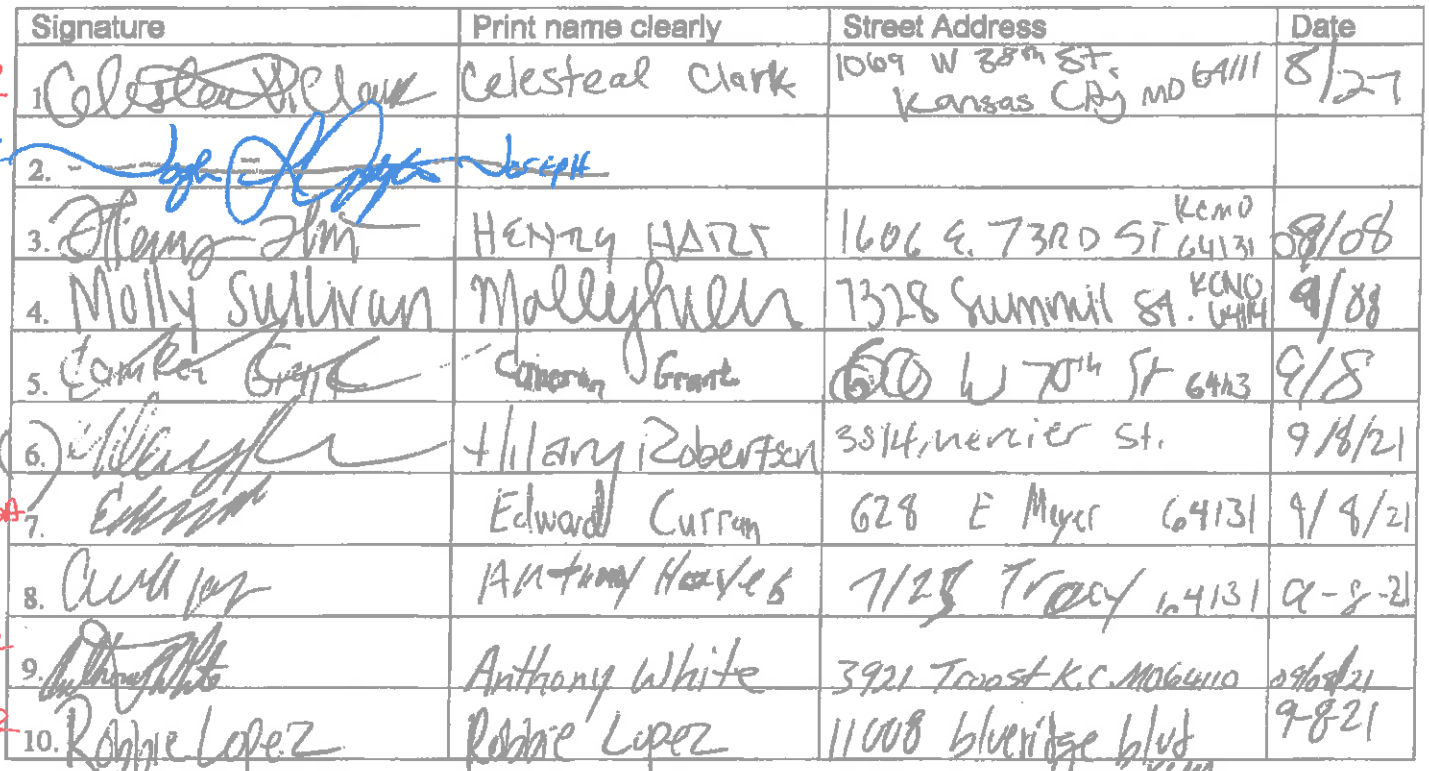 Signature Print name clearly Street Address Date
1. Celesteal D. Clark Celesteal Clark 1069 W 38th St. Kansas City MO 64111 8/27
2. Joseph
3. HENRY HART 1606 E. 73RD ST KCMO 64131 08/08
4. Molly Sullivan 7328 Summit St. KCMO 64114 9/08
5. Cameron Grant W 70th St 64113 9/8
6. Hilary Robertson 3814 mercier St. 9/8/21
7. Edward Curran 628 E Meyer 64131 9/8/21
8. Anthony 7128 Tracy 64131 9-8-21
9. Anthony White Anthony White 3921 Troost K.C. MO 64110 09/08/21
10. Robbie Lopez Robbie Lopez 11008 blueridge blvd 9-8-21